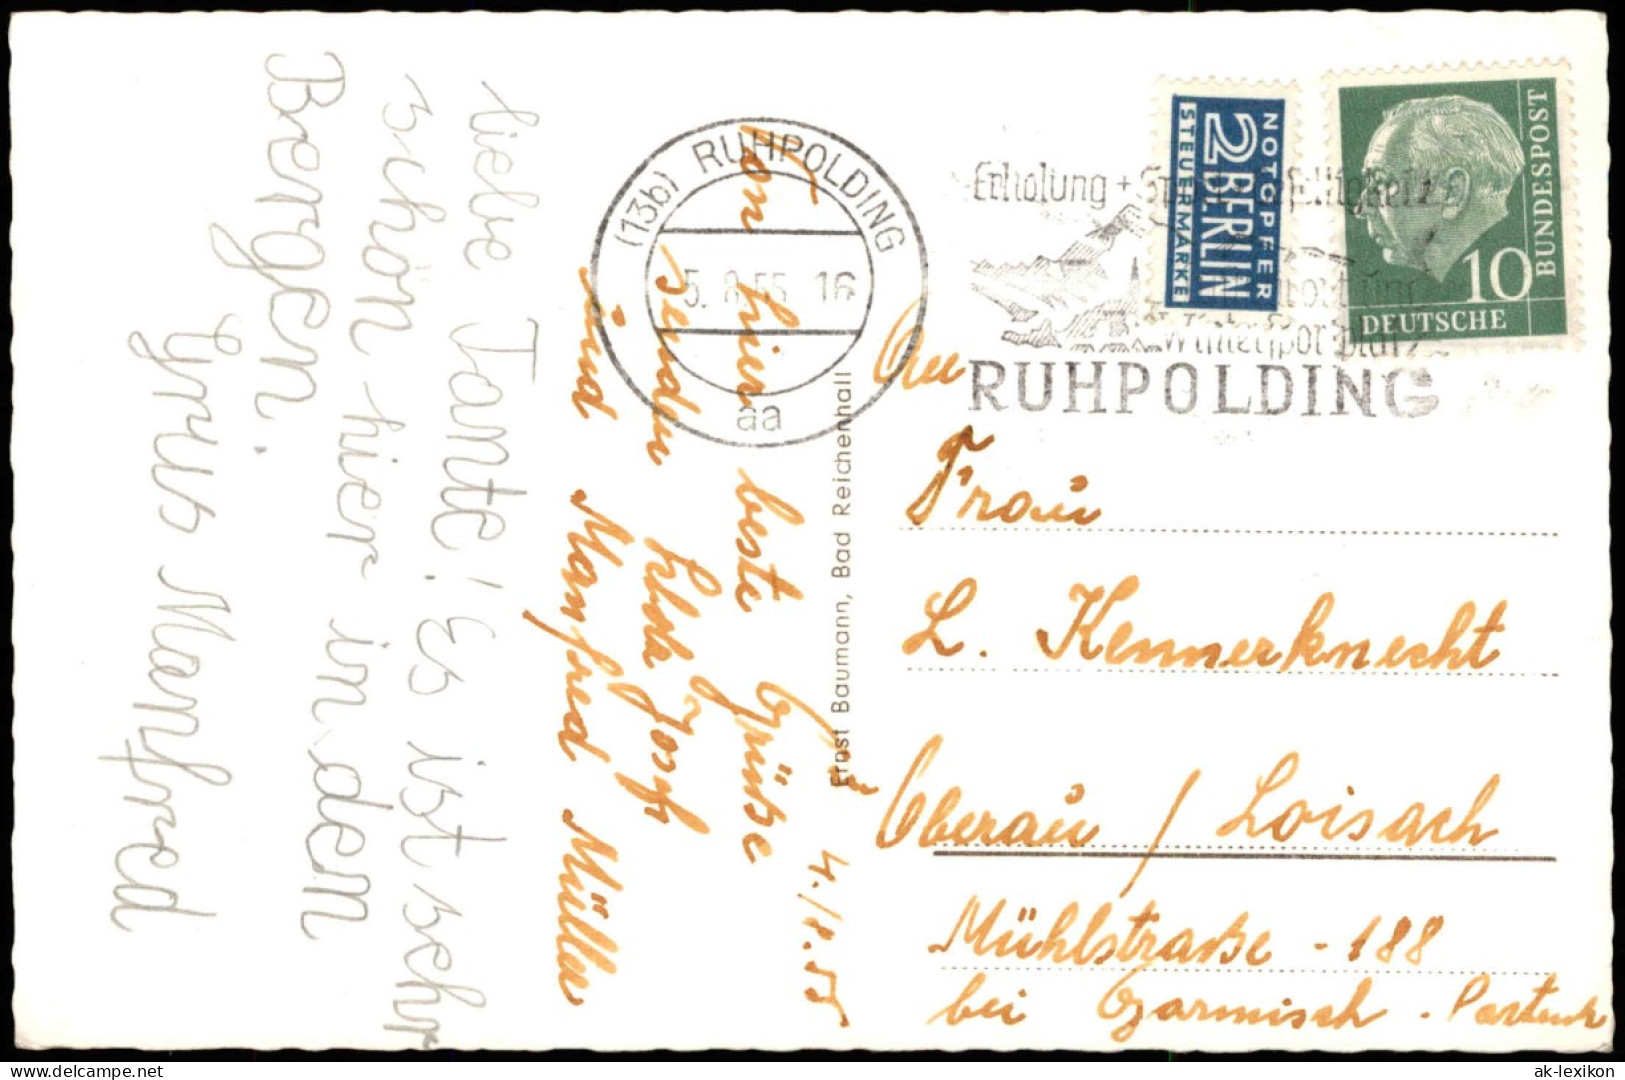 liebe Tante! Es ist sehr
schön hier in den
Bergen.
Grus Manfred
4./8.55
Von hier beste Grüße
senden Hilde Josef
und Manfred Müller
Ernst Baumann, Bad Reichenhall
(13b) RUHPOLDING
5.8.55 16
aa
Erholung +
Wintersportplatz
RUHPOLDING
NOTOPFER
2 BERLIN
STEUERMARKE
DEUTSCHE
BUNDESPOST
10
An
Frau
L. Kennerknecht
Oberau / Loisach
Mühlstraße - 188
bei Garmisch - Partenk
ak-lexikon
www.delcampe.net